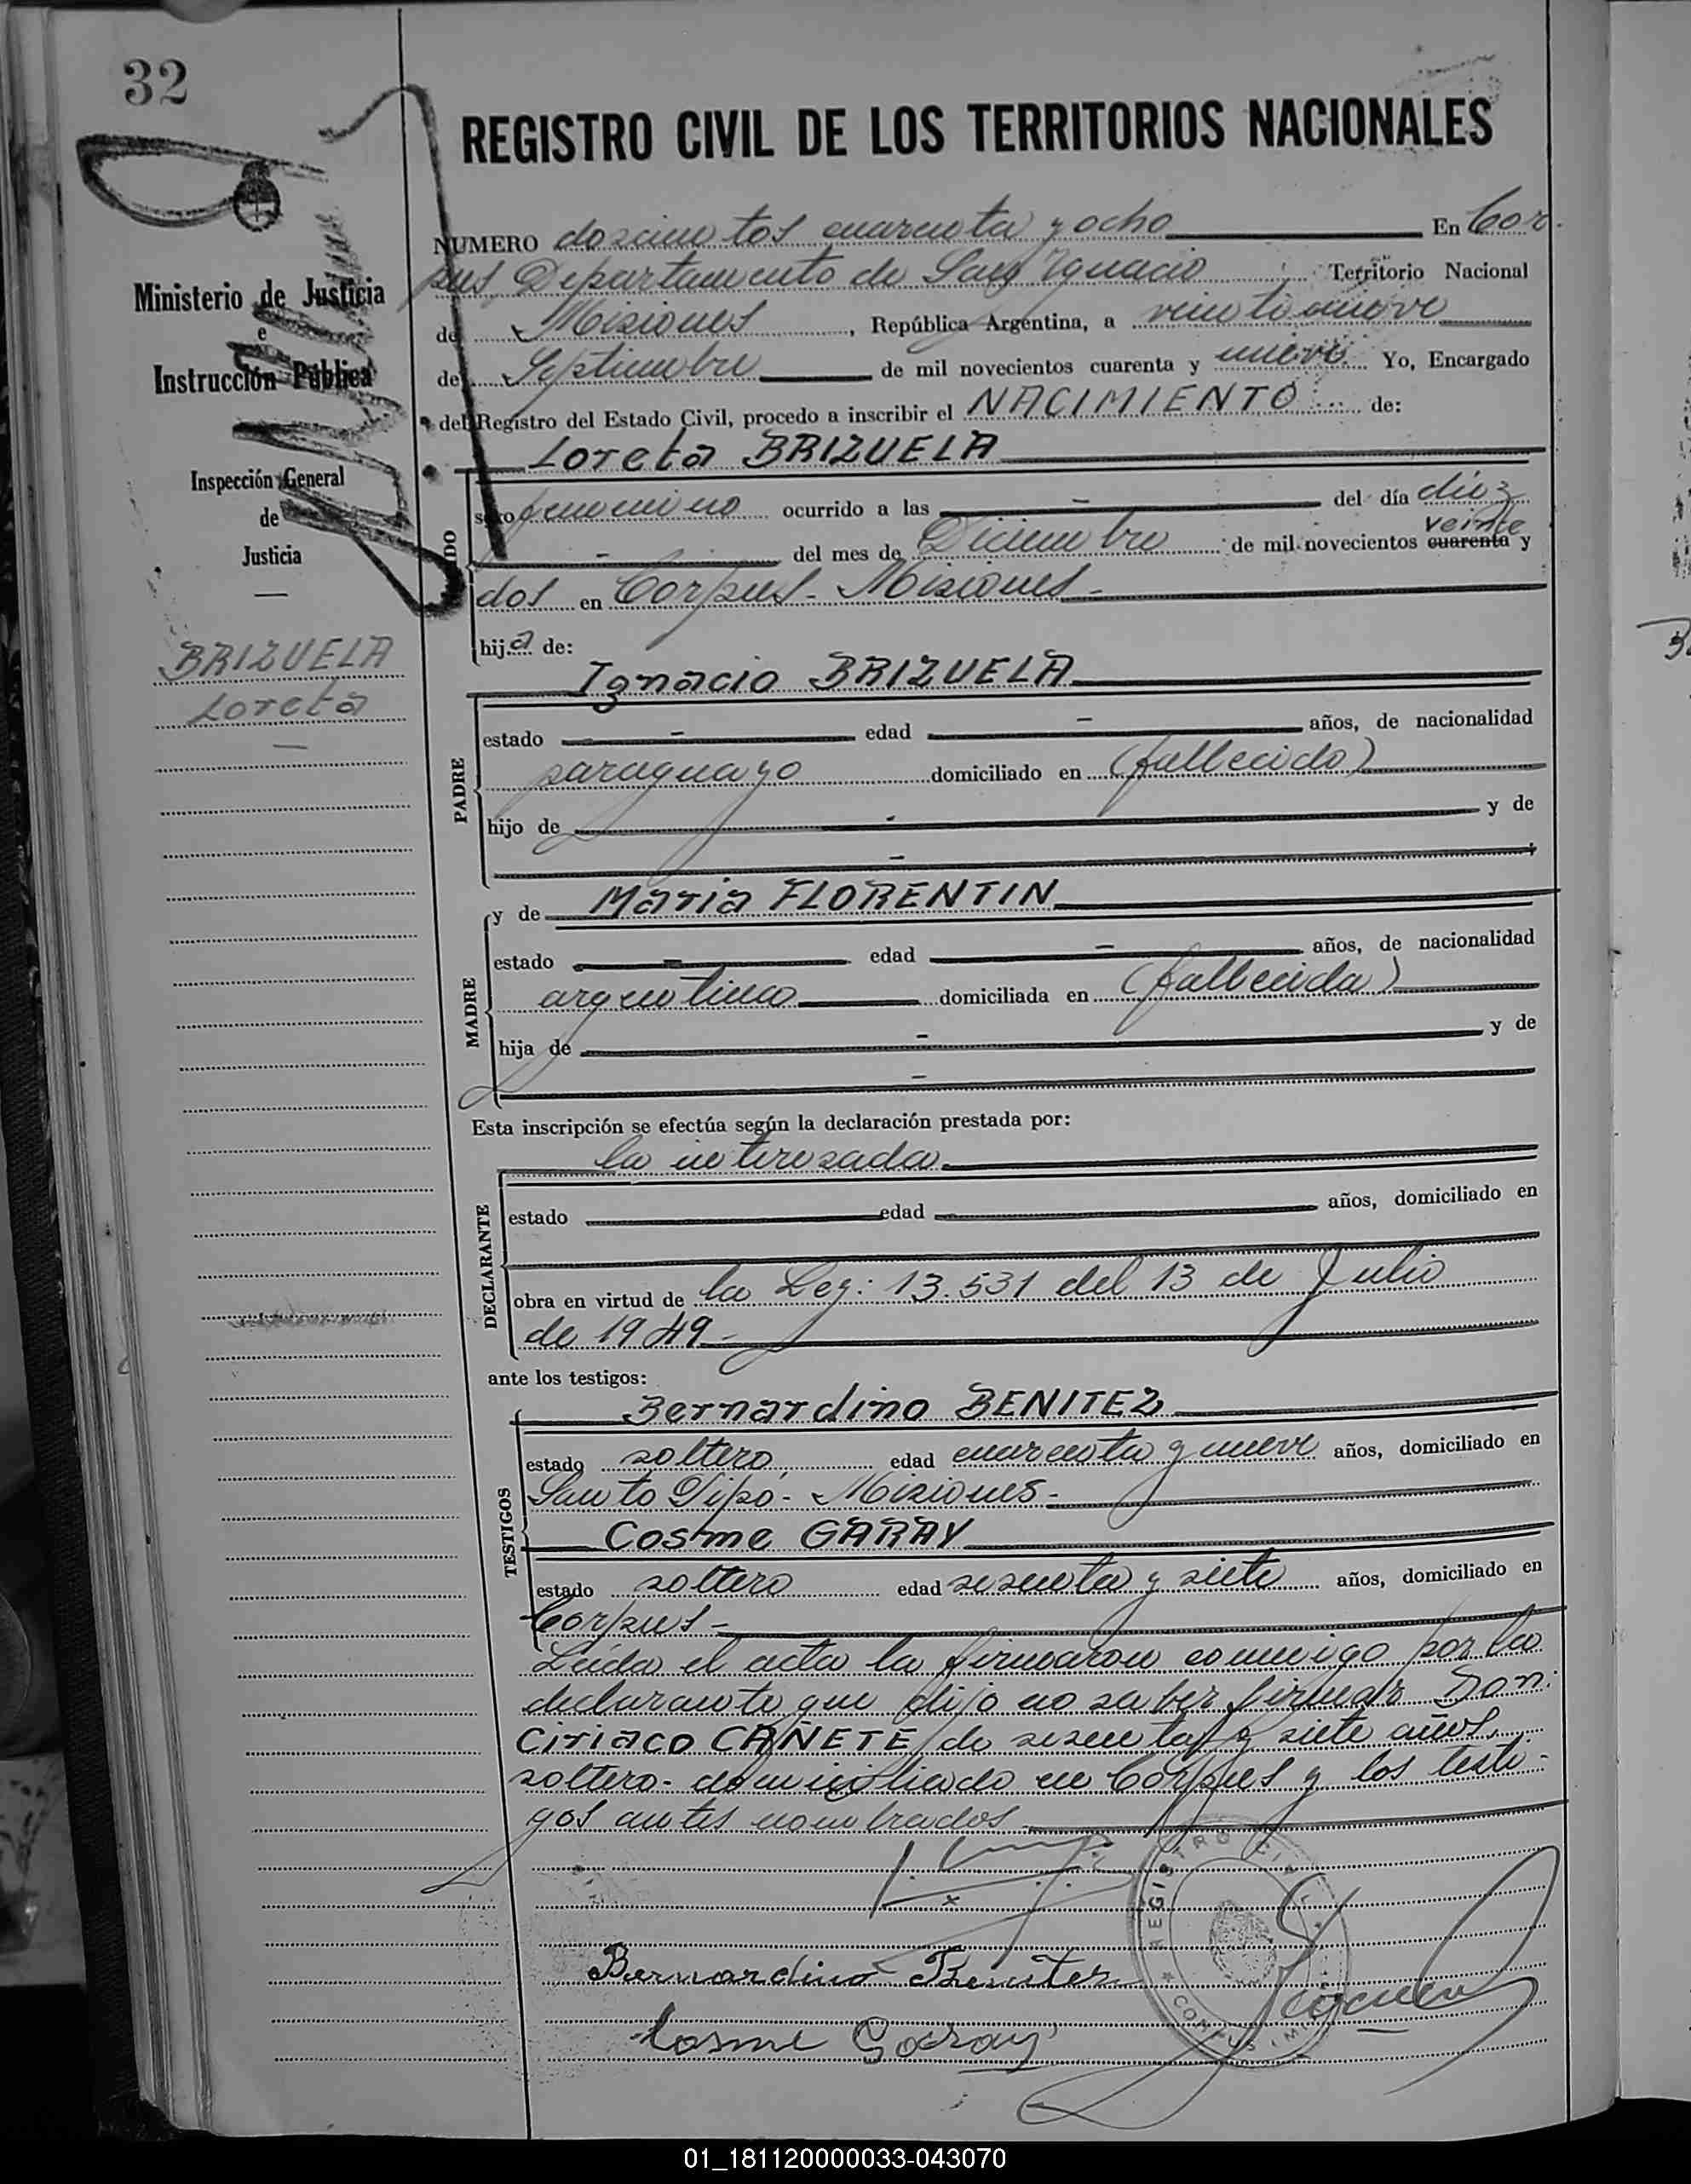 32
REGISTRO CIVIL DE LOS TERRITORIOS NACIONALES
NUMERO doscientos cuarenta y ocho En Cor-
pus, Departamento de San Ignacio Territorio Nacional
de Misiones, República Argentina, a veintinueve
de Septiembre de mil novecientos cuarenta y nueve Yo, Encargado
del Registro del Estado Civil, procedo a inscribir el NACIMIENTO de:
Loreta BRIZUELA
Ministerio de Justicia
e
Instrucción Pública
Inspección General
de
Justicia
BRIZUELA
Loreta
sexo femenino ocurrido a las - del día diez
- del mes de Diciembre de mil novecientos cuarenta veinte y
dos en Corpus - Misiones -
hija de:
PADRE
Ignacio BRIZUELA
estado - edad - años, de nacionalidad
paraguayo domiciliado en (fallecido)
hijo de - y de
-
MADRE
y de Maria FLORENTIN
estado - edad - años, de nacionalidad
argentina domiciliada en (fallecida)
hija de - y de
-
Esta inscripción se efectúa según la declaración prestada por:
DECLARANTE
la interesada
estado edad años, domiciliado en
obra en virtud de la Ley: 13.531 del 13 de Julio
de 1949 -
ante los testigos:
TESTIGOS
Bernardino BENITEZ
estado soltero, edad cuarenta y nueve años, domiciliado en
Santo Pipo - Misiones -
Cosme GARAY
estado soltero edad sesenta y siete años, domiciliado en
Corpus -
Leída el acta la firmaron conmigo por la
declarante que dijo no saber firmar Don:
Ciriaco CAÑETE de sesenta y siete años,
soltero - domiciliado en Corpus y los testi-
gos antes nombrados
REGISTRO CIVIL
Bernardino Benites
Cosme Garay
01_181120000033-043070